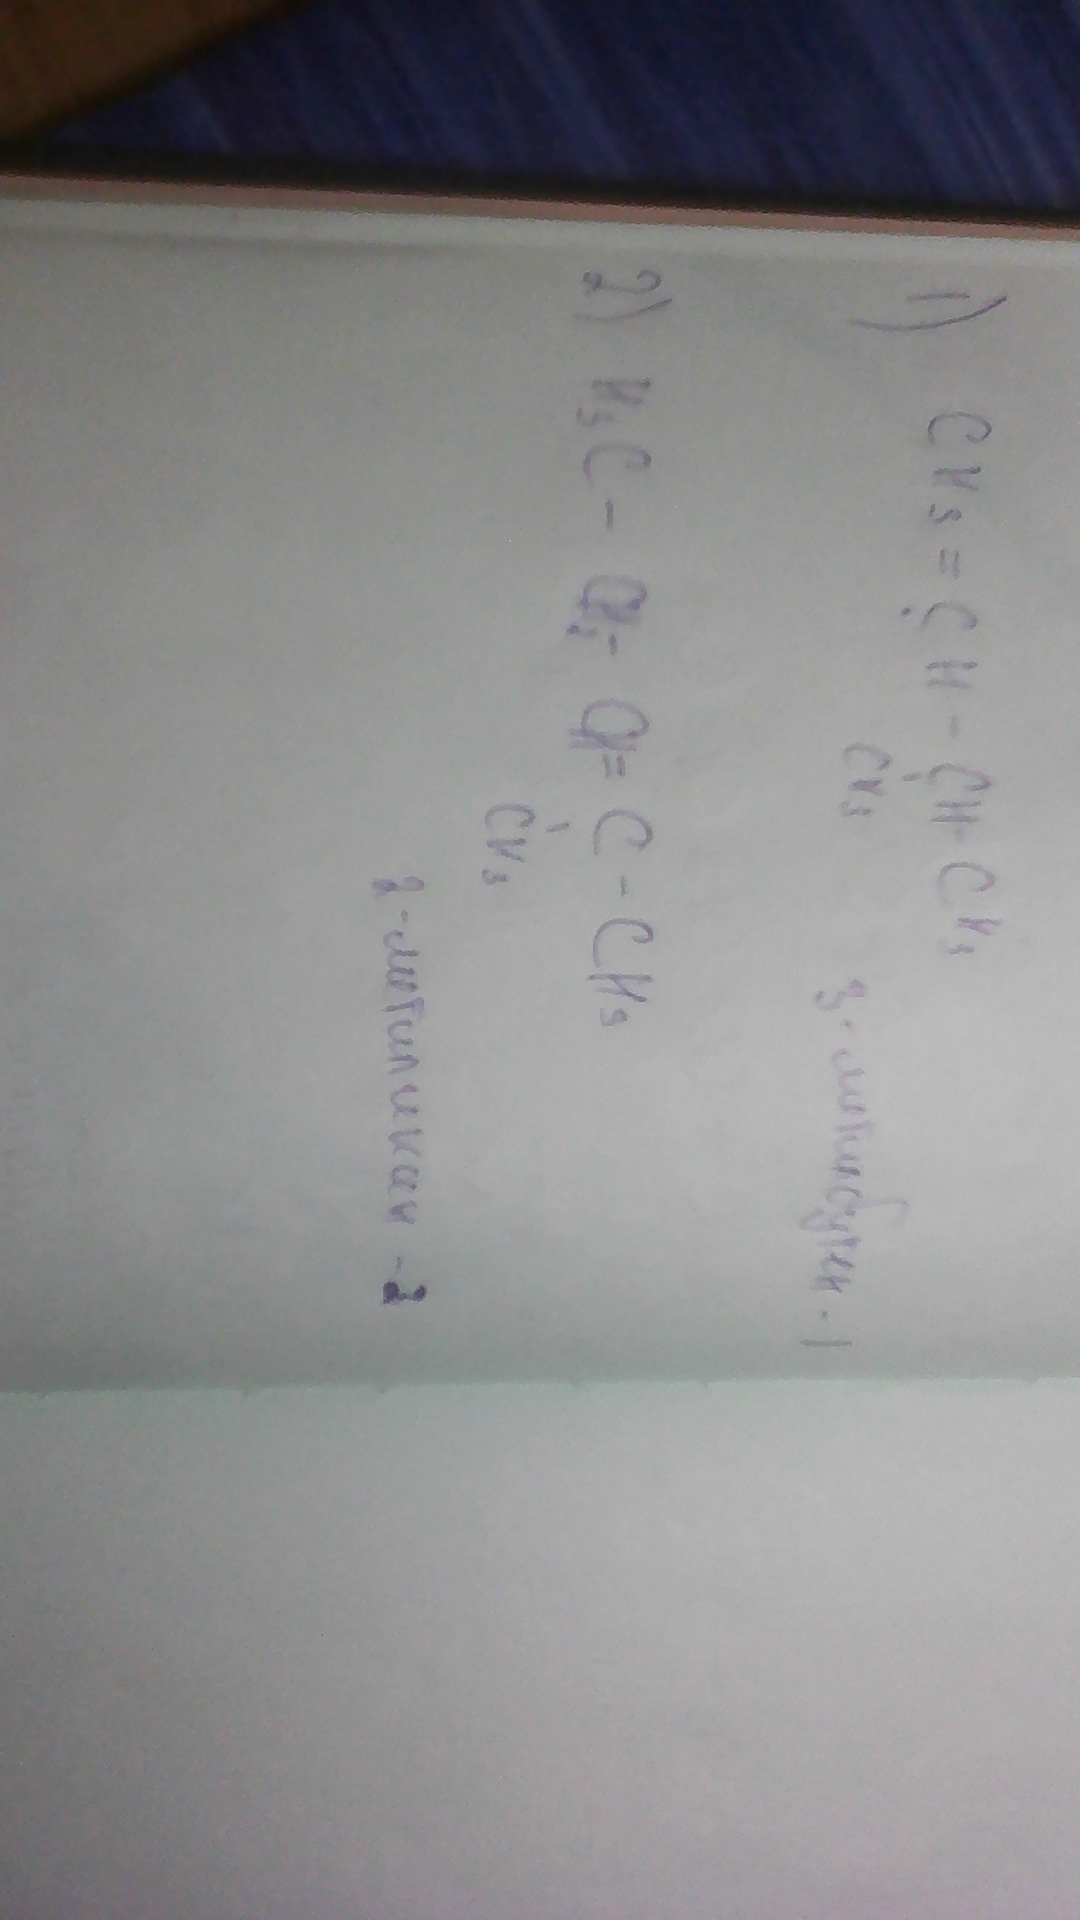 1) CH3 = CH - CH - CH3
CH3
3-метилбутен-1
2) H3C - CH2 - CH = C - CH3
CH3
2-метилпентен-2